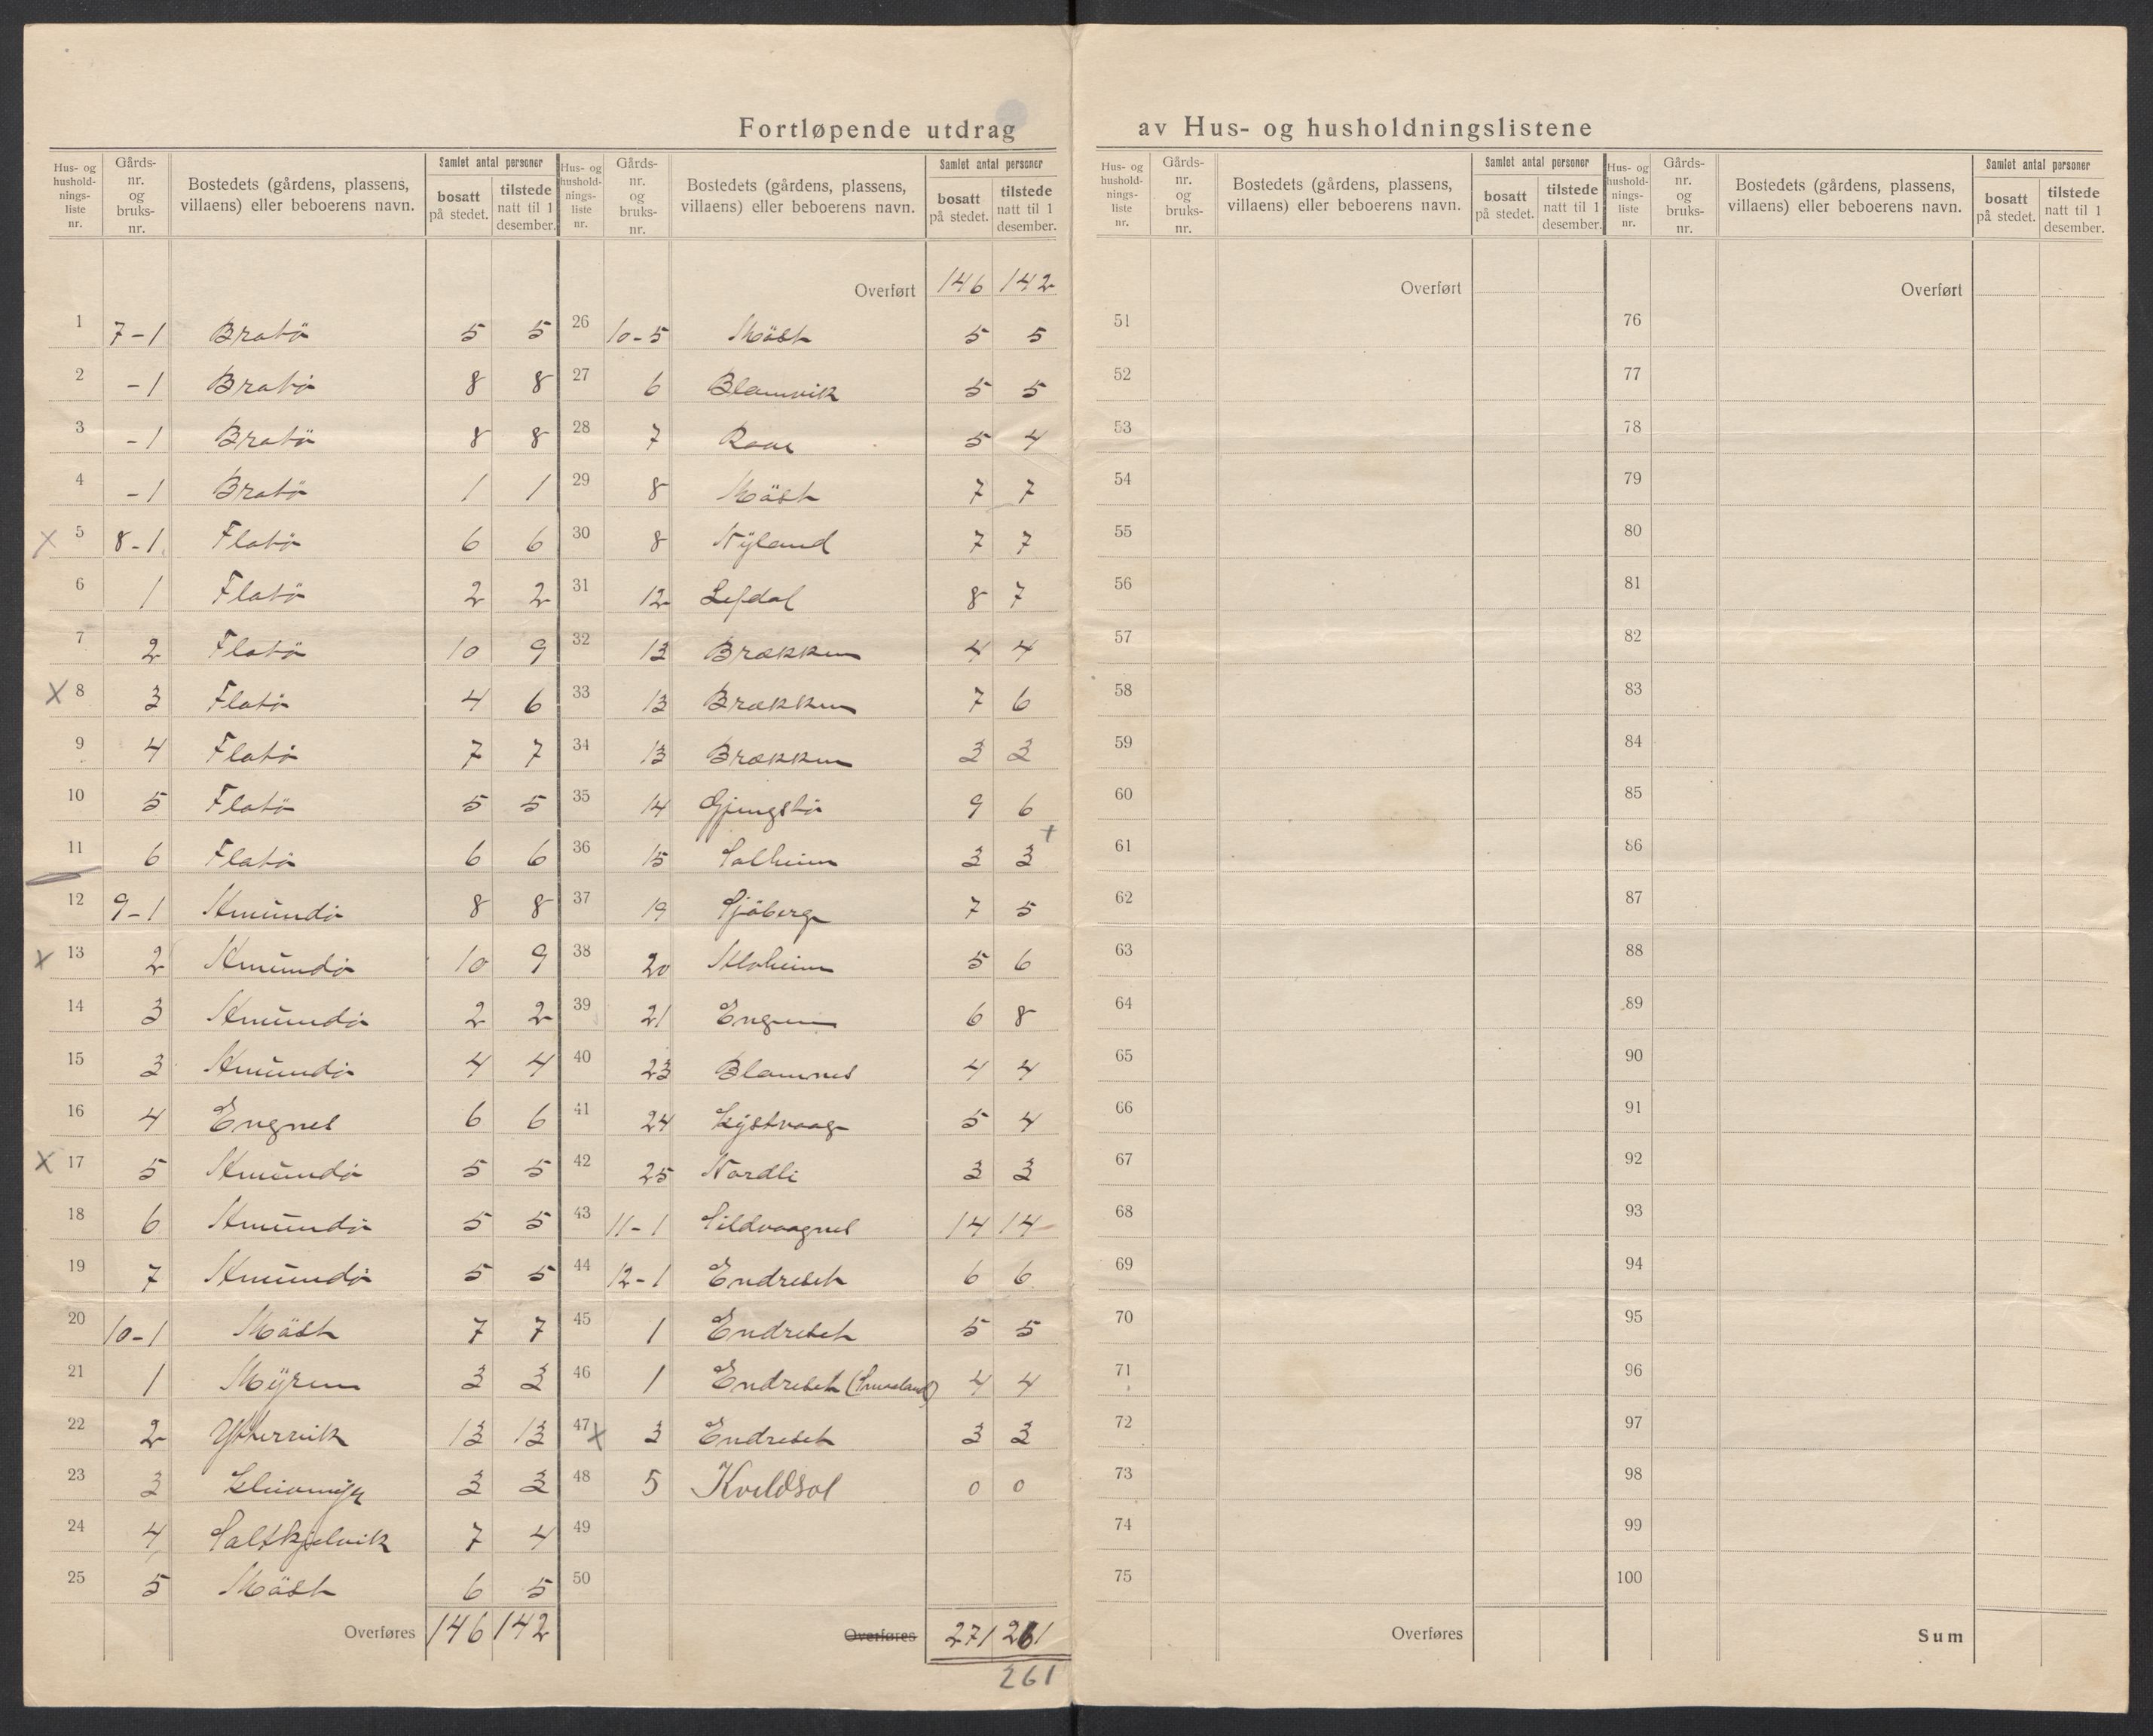 Fortløpende utdrag av Hus- og husholdningslistene
Hus- og hushold-nings-liste nr. Gårds-nr. og bruks-nr. Bostedets (gårdens, plassens, villaens) eller beboerens navn. Samlet antal personer bosatt på stedet. tilstede natt til 1 desember.
Hus- og hushold-nings-liste nr. Gårds-nr. og bruks-nr. Bostedets (gårdens, plassens, villaens) eller beboerens navn. Samlet antal personer bosatt på stedet. tilstede natt til 1 desember.
1 7-1 Bratö 5 5
2 -1 Bratö 8 8
3 -1 Bratö 8 8
4 -1 Bratö 1 1
X 5 8-1 Flatö 6 6
6 1 Flatö 2 2
7 2 Flatö 10 9
X 8 3 Flatö 4 6
9 4 Flatö 7 7
10 5 Flatö 5 5
11 6 Flatö 6 6
12 9-1 Amundö 8 8
X 13 2 Amundö 10 9
14 3 Amundö 2 2
15 3 Amundö 4 4
16 4 Engnes 6 6
X 17 5 Amundö 5 5
18 6 Amundö 5 5
19 7 Amundö 5 5
20 10-1 Mäst 7 7
21 1 Myren 3 3
22 2 Yttervik 13 13
23 3 3 3
24 4 Saltkjelvik 7 4
25 5 Mäst 6 5
Overføres 146 142
Overført 146 142
26 10-5 Mäst 5 5
27 6 Blamvik 5 5
28 7 Roar 5 4
29 8 Mäst 7 7
30 8 Nyland 7 7
31 12 Lefdal 8 7
32 13 Brækken 4 4
33 13 Brækken 7 6
34 13 Brækken 3 3
35 14 Gjengstö 9 6
36 15 Solheim 3 3 +
37 19 Sjöberg 7 5
38 20 Moheim 5 6
39 21 Engen 6 8
40 23 Blamnes 4 4
41 24 Lystvaag 5 4
42 25 Nordli 3 3
43 11-1 Sildvaagnes 14 14
44 12-1 Endreset 6 6
45 1 Endreset 5 5
46 1 Endreset (Smveland) 4 4
47 X 3 Endreset 3 3
48 5 Kveldsol 0 0
49
50
Overføres 271 261
261
Hus- og hushold-nings-liste nr. Gårds-nr. og bruks-nr. Bostedets (gårdens, plassens, villaens) eller beboerens navn. Samlet antal personer bosatt på stedet. tilstede natt til 1 desember.
Hus- og hushold-nings-liste nr. Gårds-nr. og bruks-nr. Bostedets (gårdens, plassens, villaens) eller beboerens navn. Samlet antal personer bosatt på stedet. tilstede natt til 1 desember.
Overført
51
52
53
54
55
56
57
58
59
60
61
62
63
64
65
66
67
68
69
70
71
72
73
74
75
Overføres
Overført
76
77
78
79
80
81
82
83
84
85
86
87
88
89
90
91
92
93
94
95
96
97
98
99
100
Sum